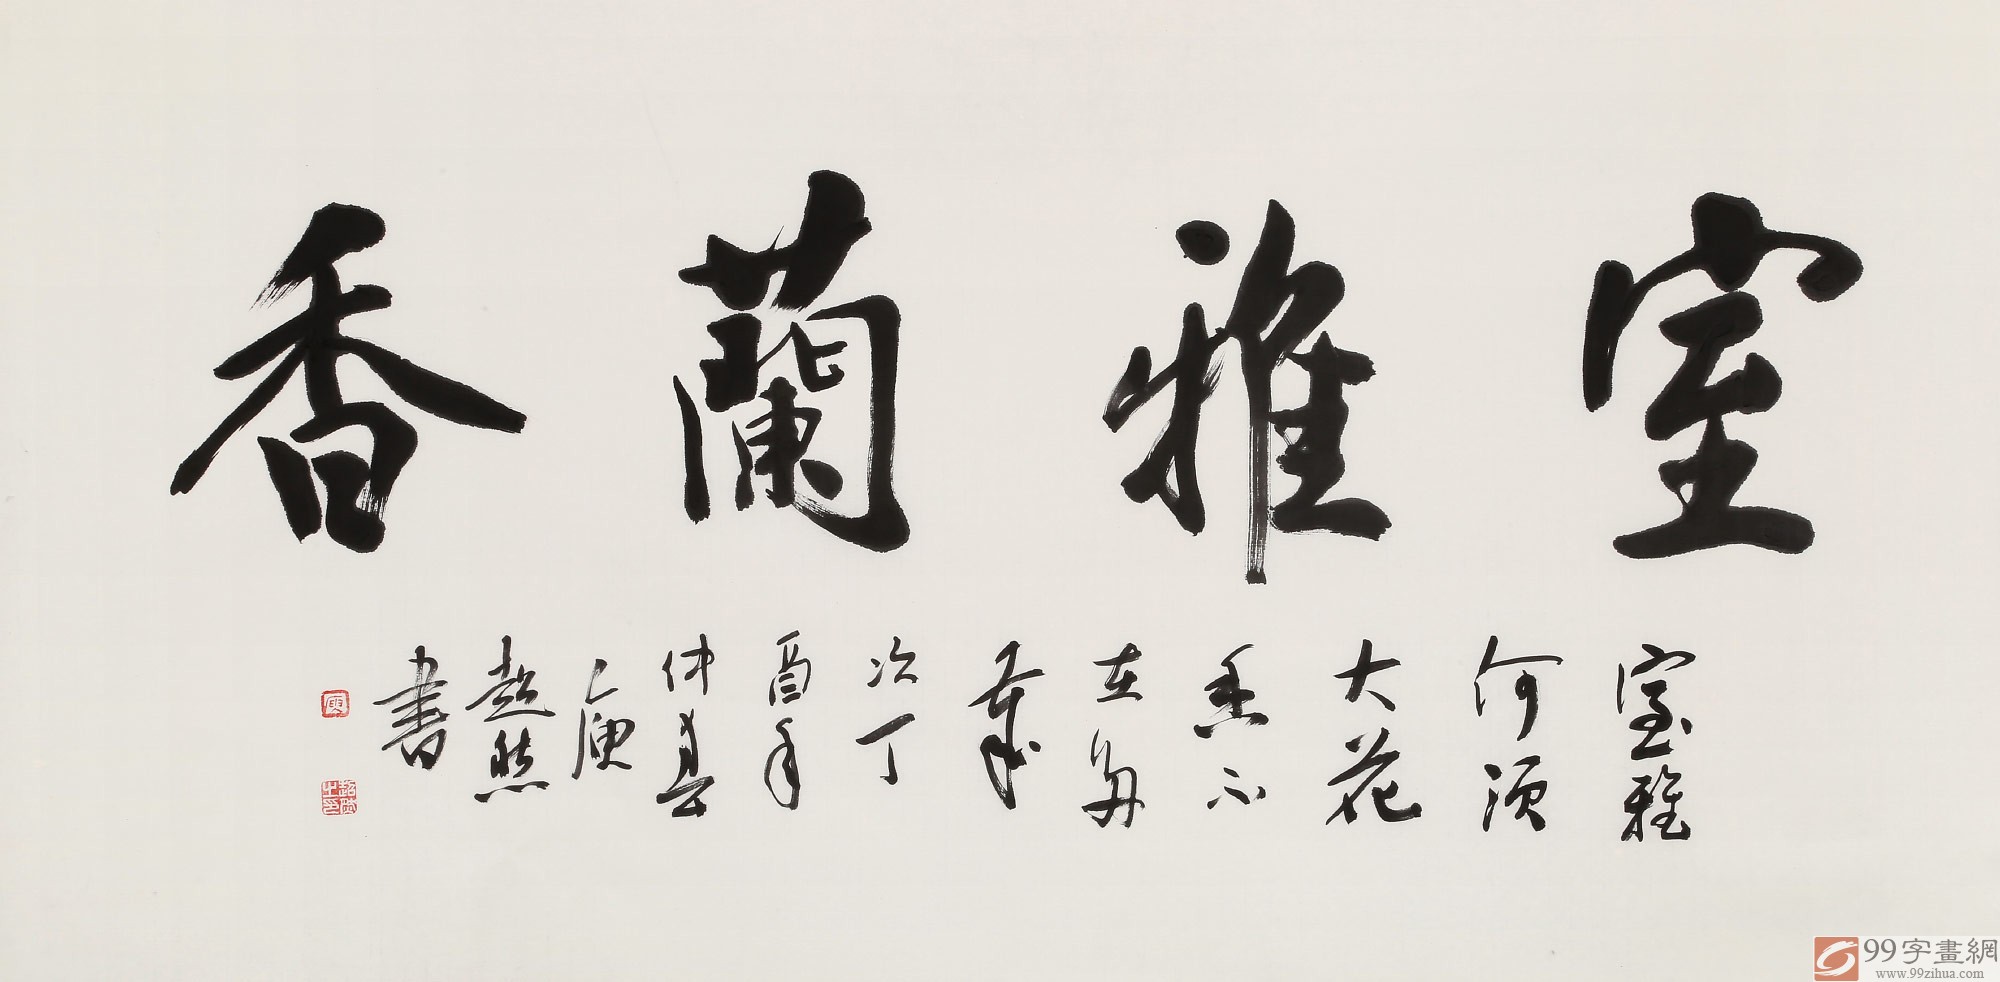 室雅蘭香
室雅
何須
大花
香不
在多
歲
次丁
酉年
仲春
超然
書
99字畫網
www.99zihua.com